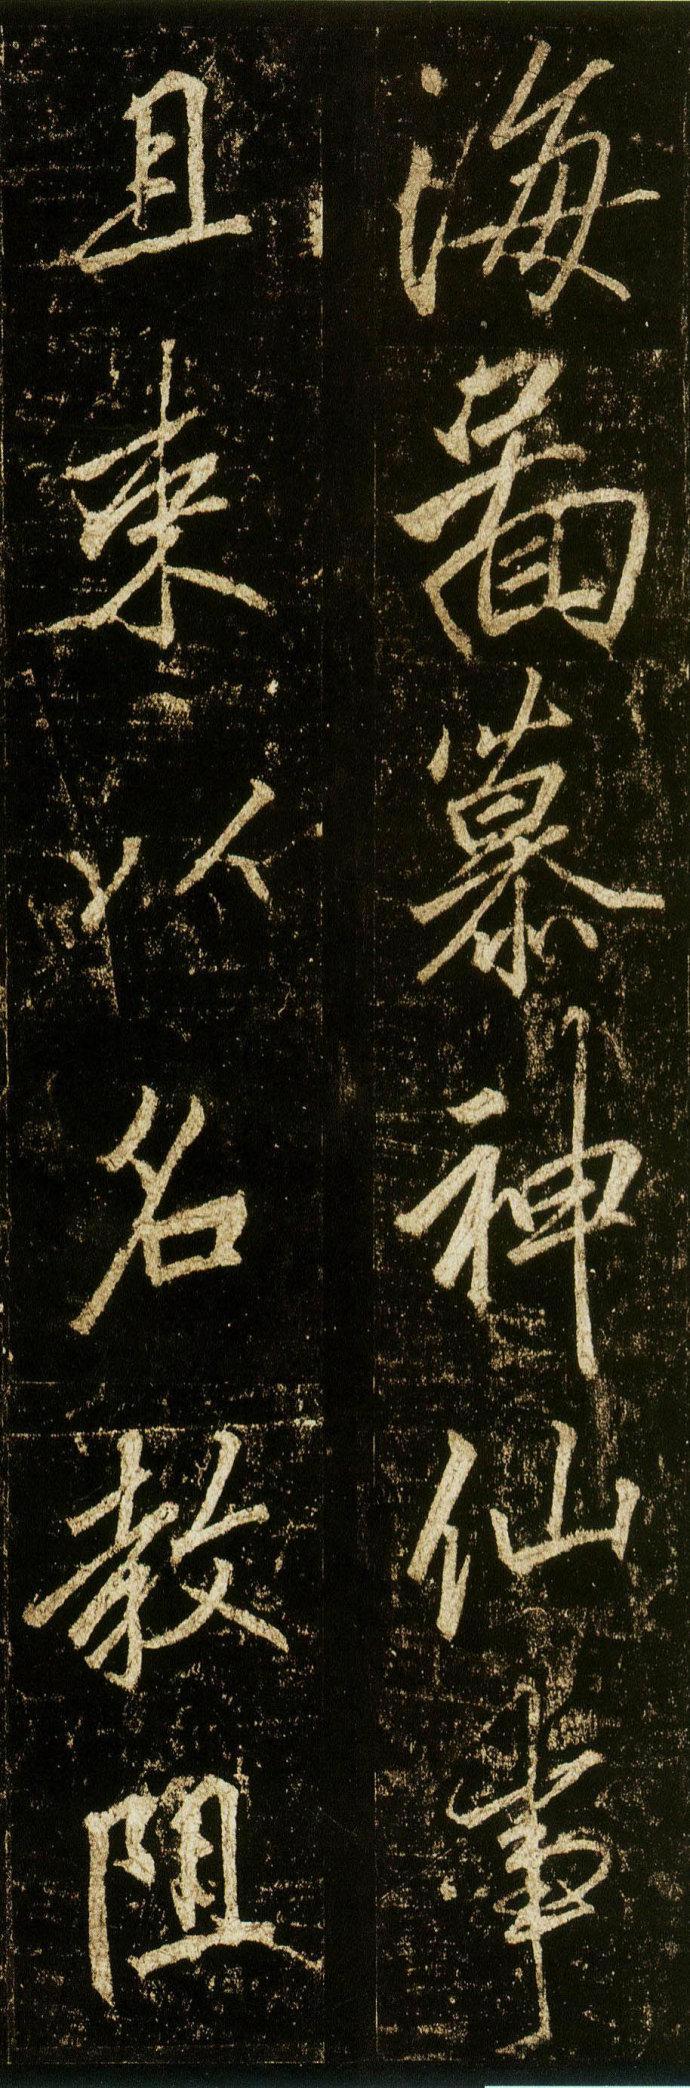 海啚慕神仙事
且束以名教阻